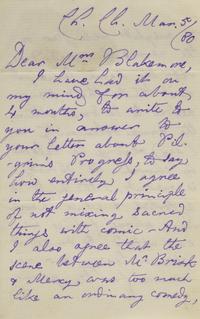 Ch. Ch. Mar. 5/80
Dear Mrs Blakemore,
I have had it on
my mind for about
4 months, to write to
you in answer to
your letter about Pil-
grim's Progress, to say
how entirely I agree
in the general principle
of not mixing sacred
things with comic – And
I also agree that the
scene between Mr. Brisk
& Mercy was too much
like an ordinary comedy,